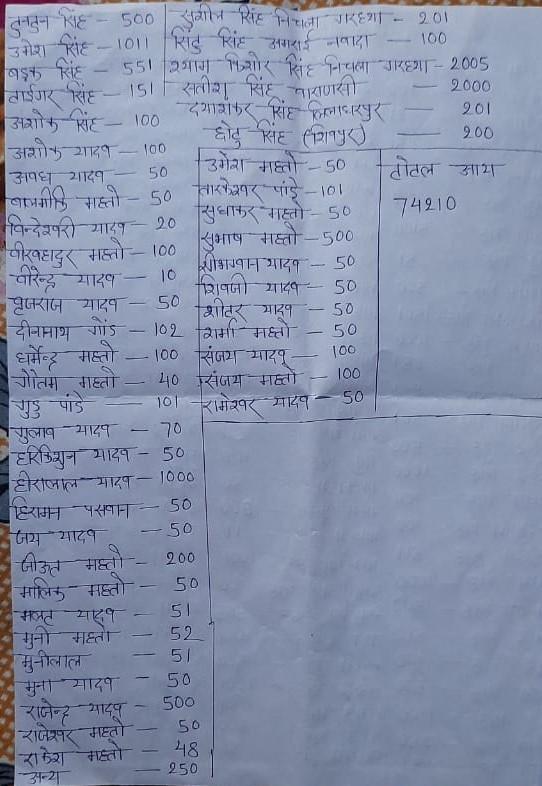 टुनटुन सिंह - 500
उमेश सिंह - 1011
बड़क सिंह - 551
टाईगर सिंह - 151
अशोक सिंह - 100
अशोक यादव - 100
अवध यादव - 50
बालमीकि महतो - 50
विन्देश्वरी यादव - 20
वीरबहादुर महतो - 100
वीरेन्द्र यादव - 10
बृजराज यादव - 50
दीनानाथ गोंड - 102
धर्मेन्द्र महतो - 100
गौतम महतो - 40
गुडु पांडे - 101
गुलाब यादव - 70
हरिकिशुन यादव - 50
हीरालाल यादव - 1000
हिरामन पासवान - 50
जय यादव - 50
जीऊत महतो - 200
मालिक महतो - 50
यादव - 51
मुनी महतो - 52
मुनीलाल - 51
मुना यादव - 50
राजेन्द्र यादव - 500
राजेश्वर महतो - 50
राकेश महतो - 48
अन्य - 250
सुशील सिंह निचला गरहथा - 201
सिंटु सिंह अमराई नवादा - 100
श्याम किशोर सिंह निचला गरहथा - 2005
सतीश सिंह वाराणसी - 2000
दयाशंकर सिंह लिलाधरपुर - 201
छोटु सिंह (शिवपुर) - 200
उमेश महतो - 50
तारकेश्वर पांडे - 101
सुधाकर महतो - 50
सुभाष महतो - 500
श्रीभगवान यादव - 50
शिवजी यादव - 50
यादव - 50
शर्मा महतो - 50
संजय यादव - 100
संजय महतो - 100
रामेश्वर यादव - 50
टोटल आय
74210